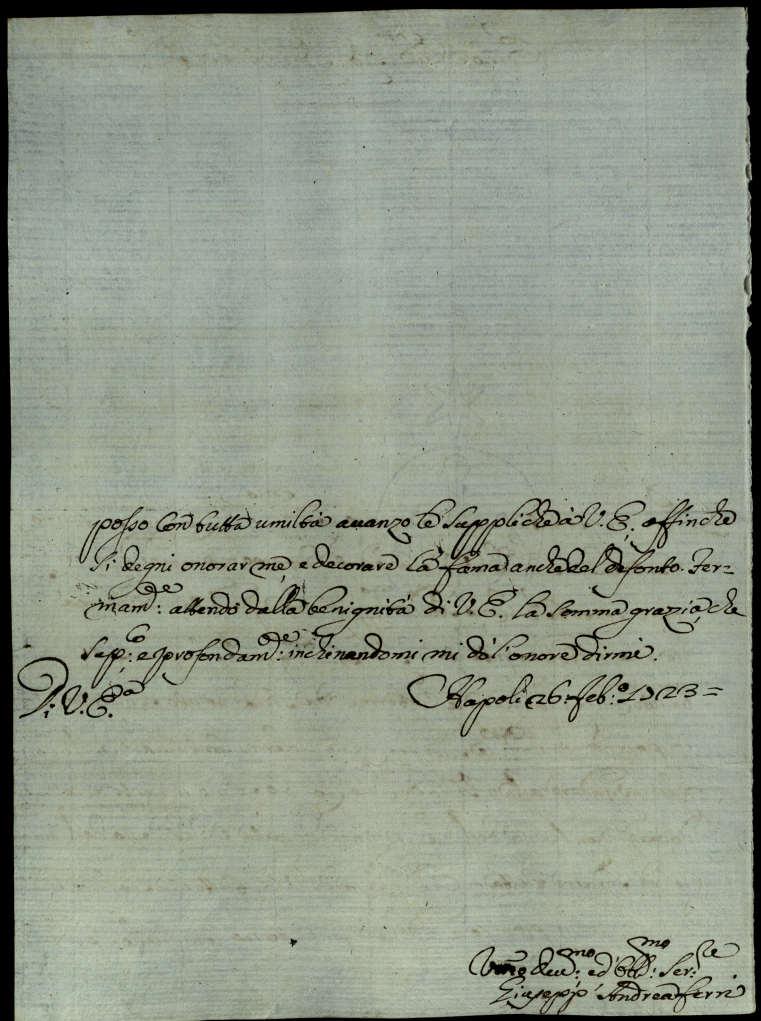 posso con tutta umiltà auanzo le suppliche à V. E. affinche
si degni onorar me, e decorare la fama anche del defonto. Fer-
mam:de attendo dalla benignità di V. E. la somma grazia, che
sup:co e profondam:de inchinandomi mi dò l'onore dirmi.
Di V. E.a
Napoli 26: Feb:o 1723=
deu:mo ed obb:mo Ser:re
Giusepp' Andrea Ferri